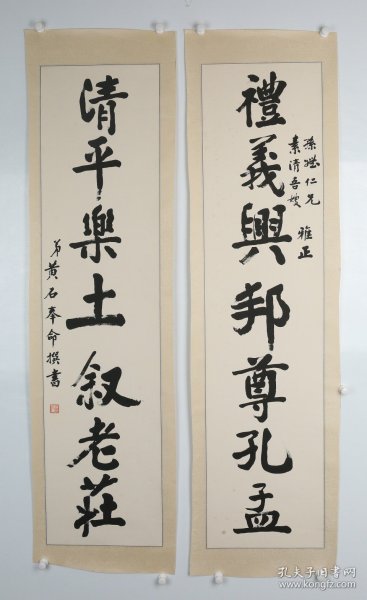 禮義興邦尊孔孟
仁兄
素清吾嫂
雅正
清平樂土叙老莊
弟黄石奉命撰書
孔夫子旧书网
kongfz.com